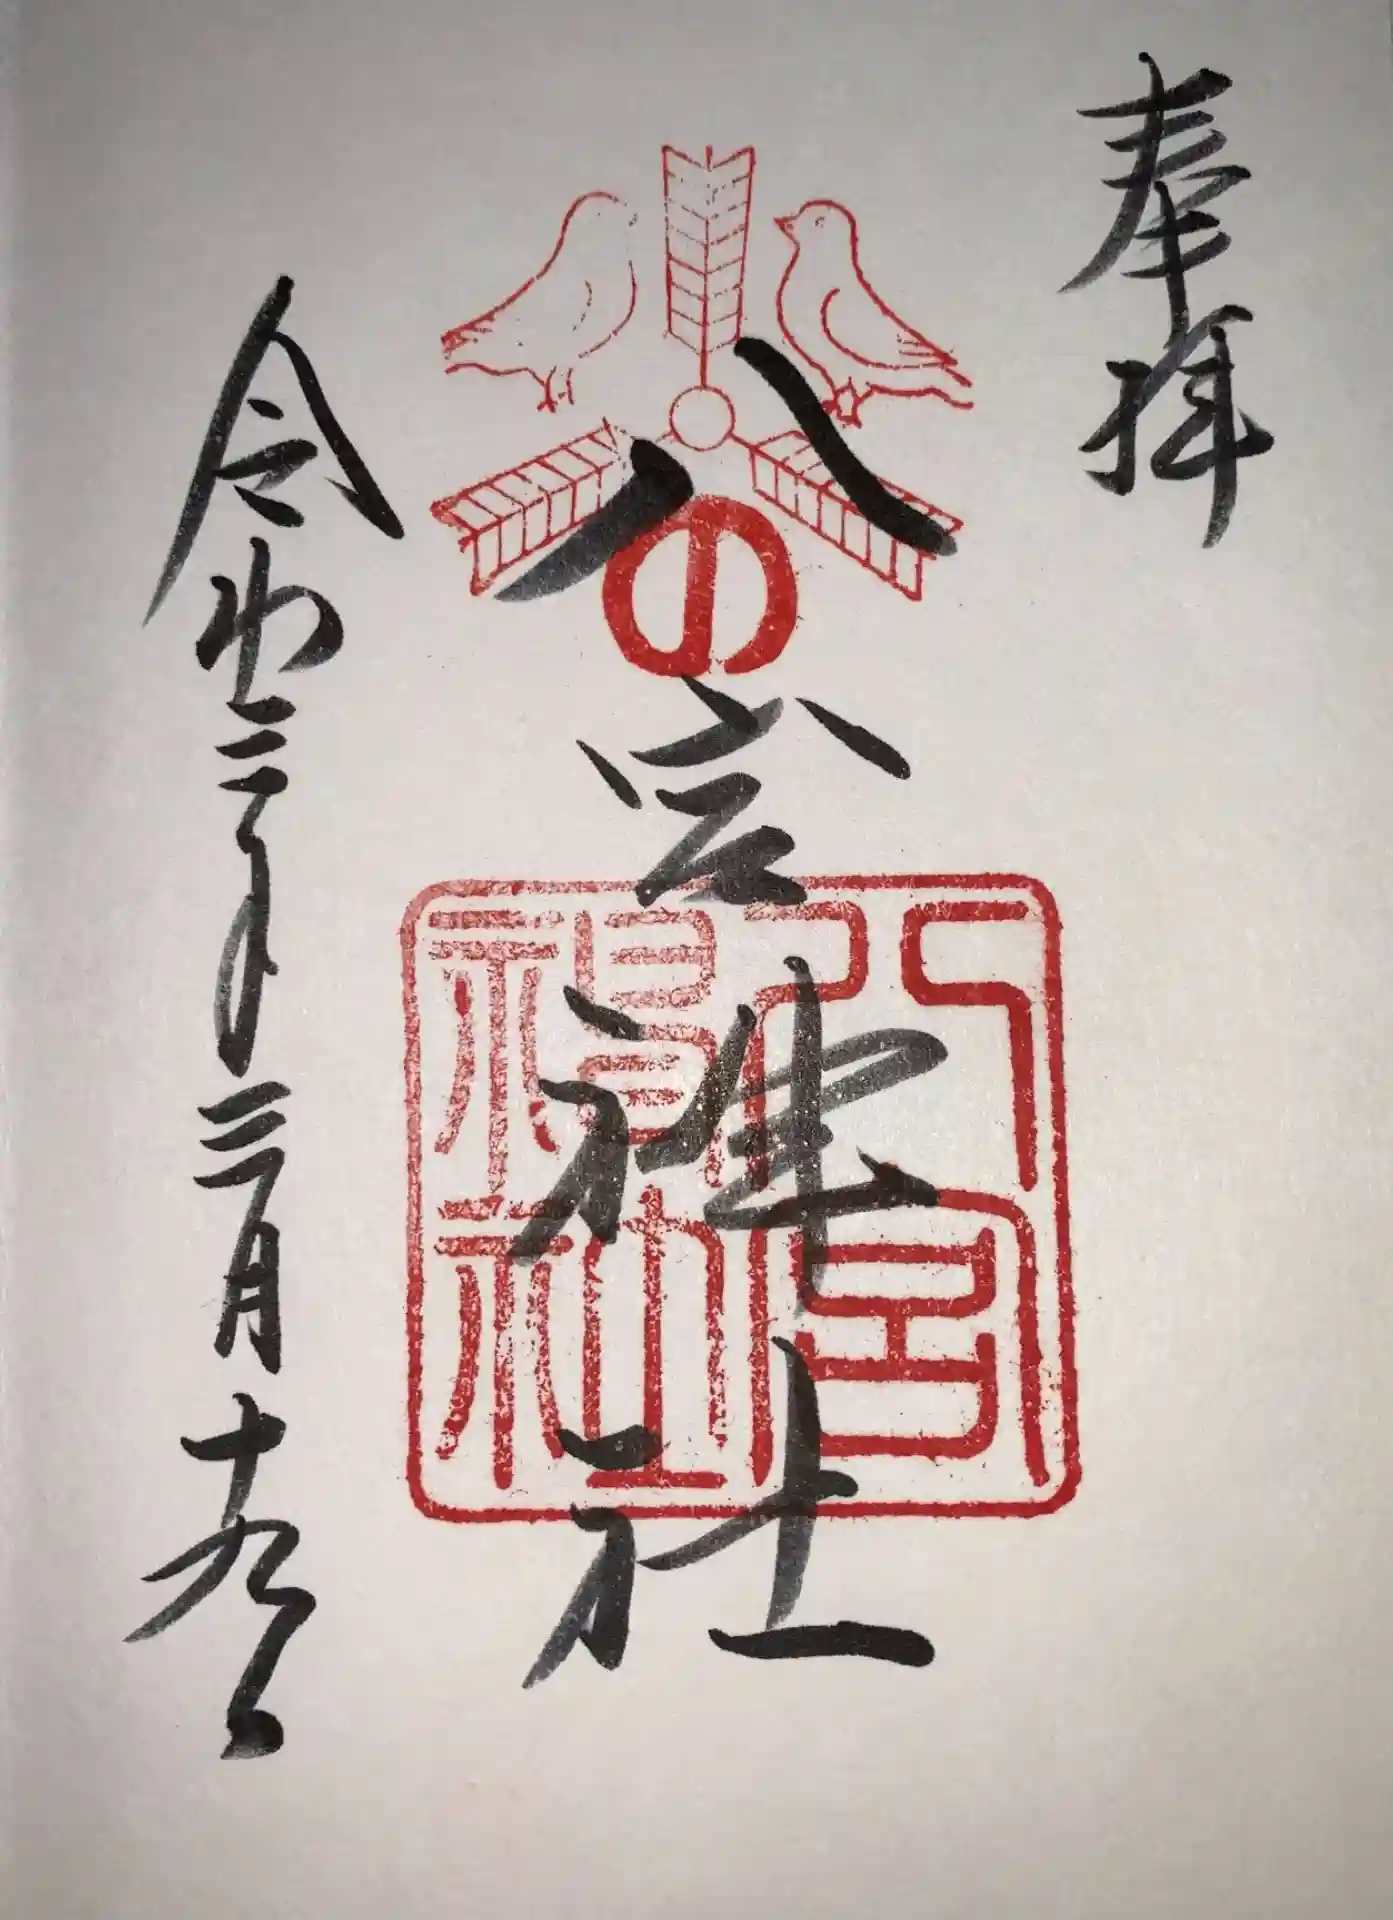 奉拝
八宮神社
令和三年三月十九日
の
八宮
神社